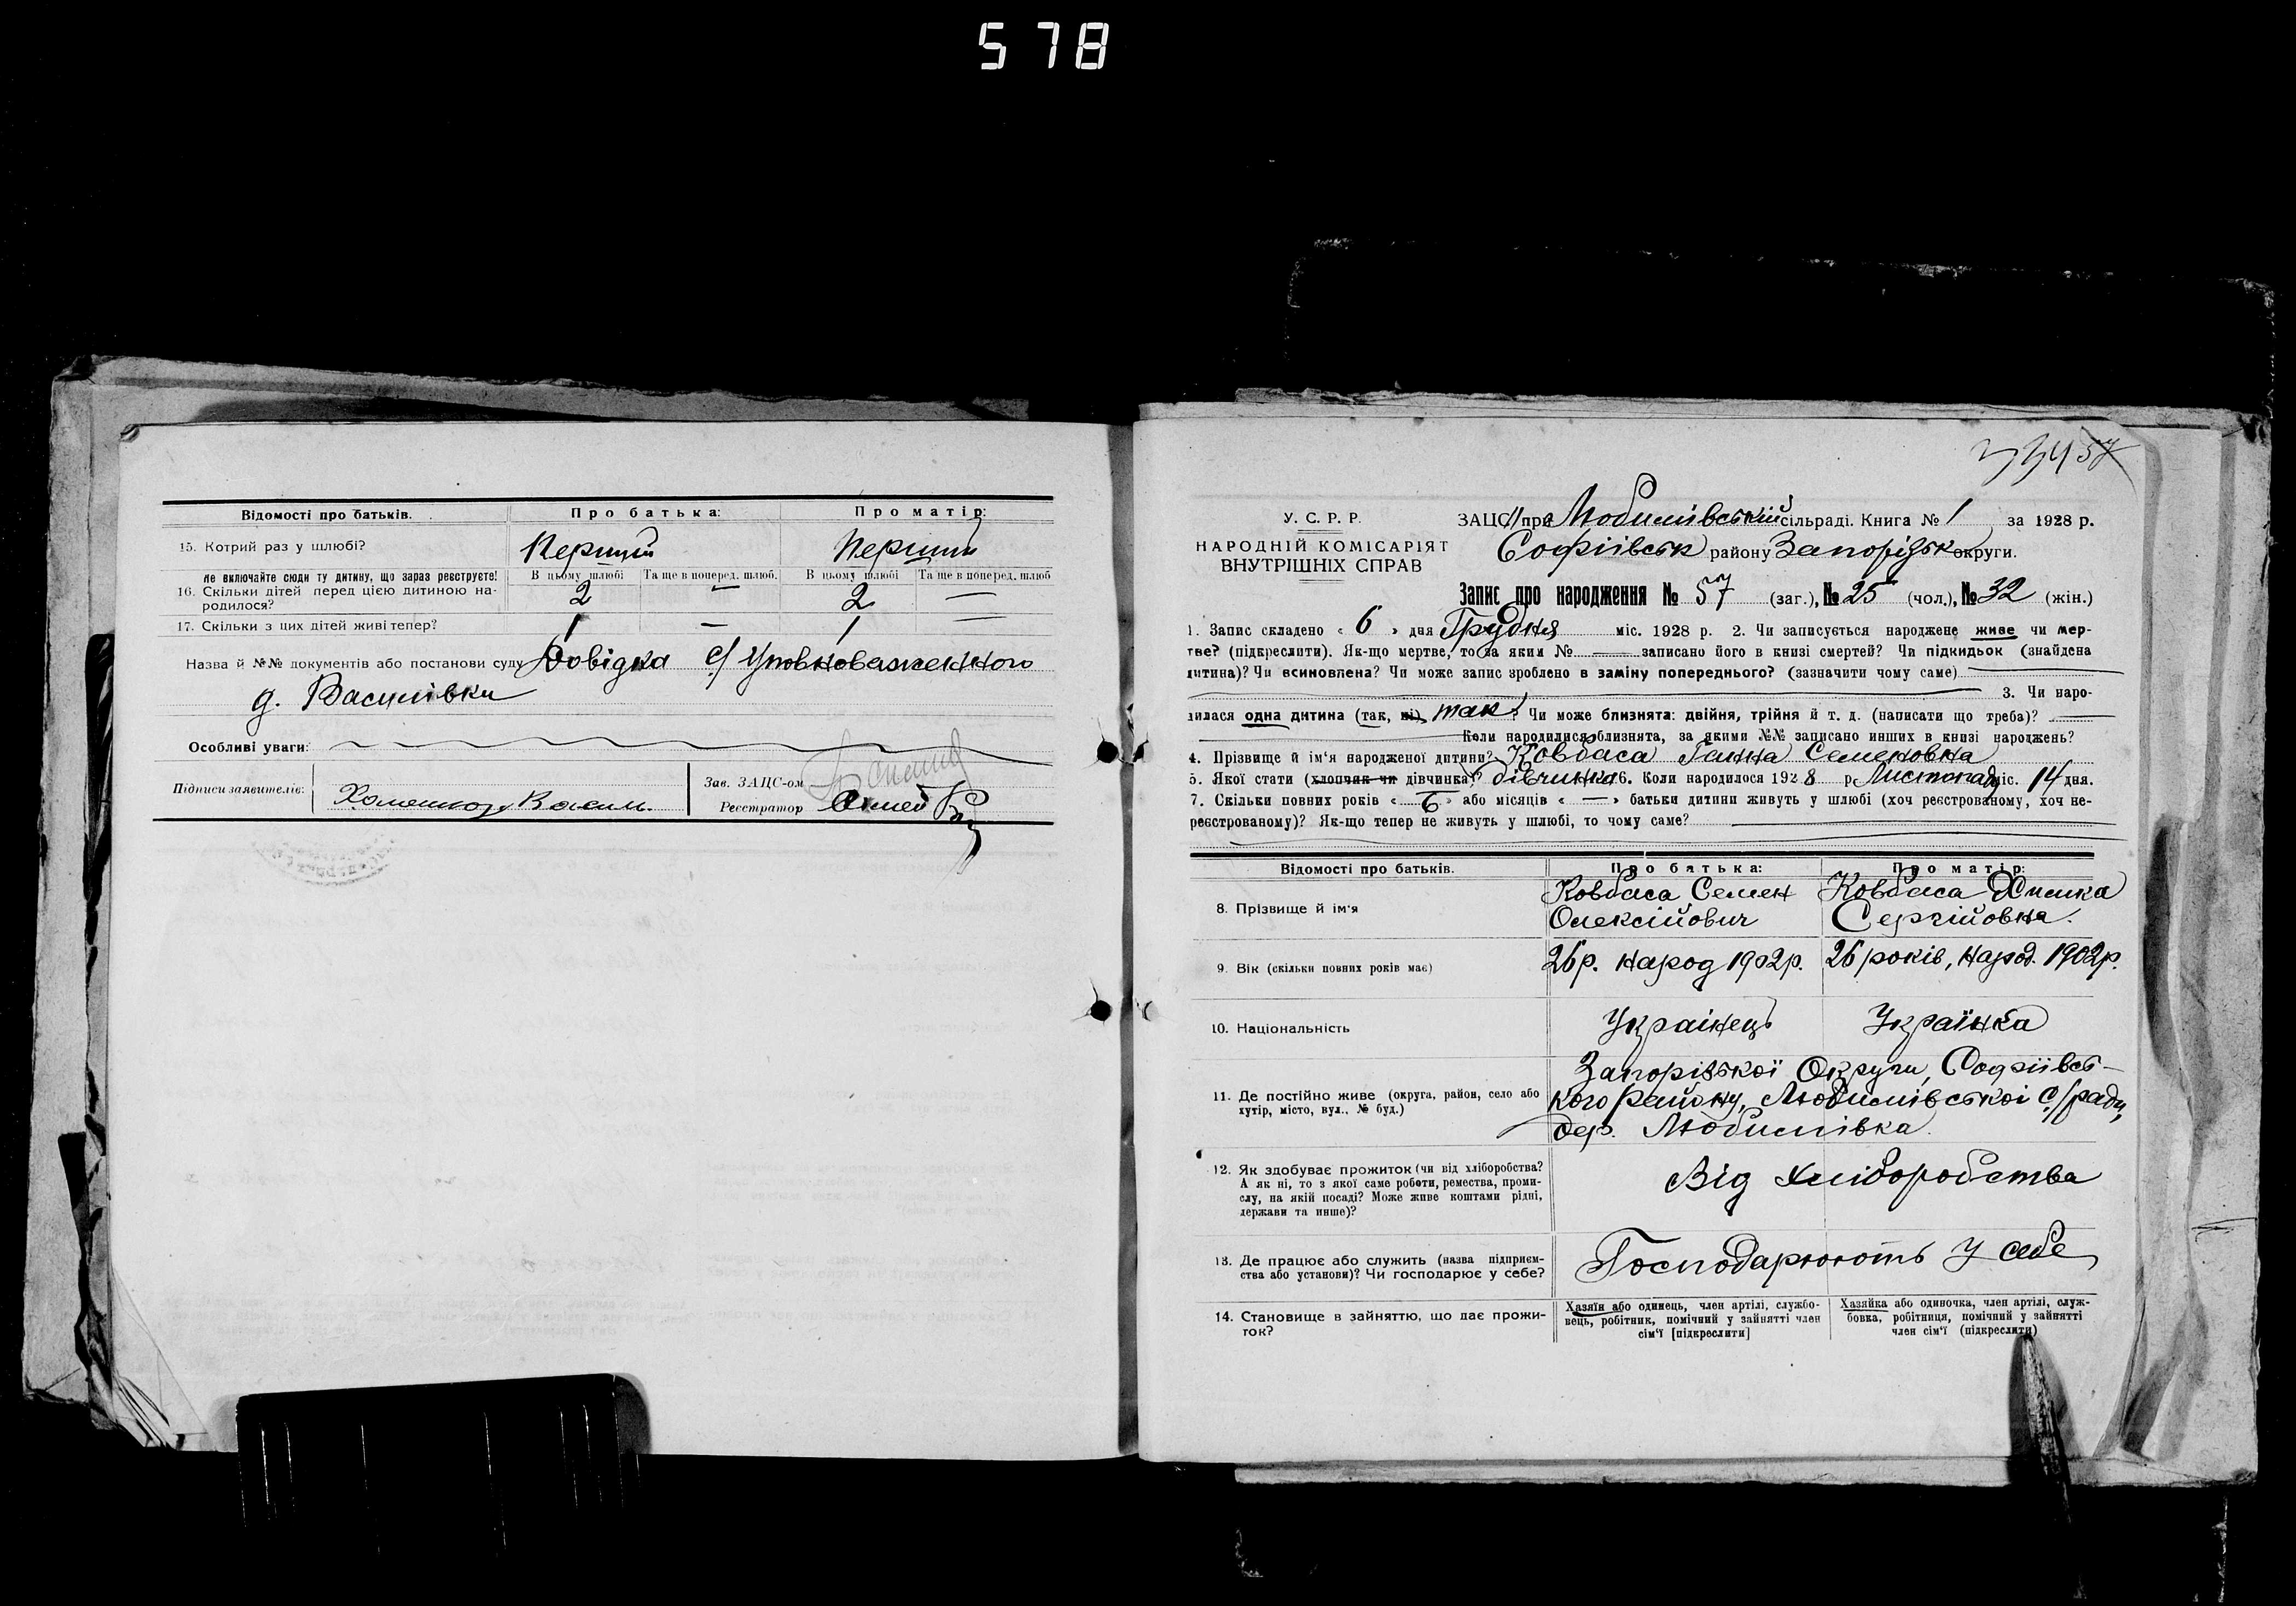 578
Відомості про батьків. Про батька: Про матір:
15. Котрий раз у шлюбі? Перший Перший
Не включайте сюди ту дитину, що зараз реєструєте! В цьому шлюбі Та ще в поперед. шлюб. В цьому шлюбі Та ще в поперед. шлюб
16. Скільки дітей перед цією дитиною на- 2 — 2 —
родилося?
17. Скільки з цих дітей живі тепер? 1 — 1 —
Назва й №№ документів або постанови суду Довідка с/ уповноваженного
д. Василівки
Особливі уваги:
Підписи заявителів: Василь. Зав. ЗАЦС-ом
Реєстратор
334 57
У. С. Р. Р. ЗАЦС при Любимівській сільраді. Книга № 1 за 1928 р.
НАРОДНІЙ КОМІСАРІЯТ Софіївськ району Запорізьк округи.
ВНУТРІШНІХ СПРАВ
Запис про народження № 57 (заг.), № 25 (чол.), № 32 (жін.)
1. Запис складено « 6 » дня Грудня міс. 1928 р. 2. Чи записується народжене живе чи мер-
тве? (підкреслити). Як-що мертве, то за яким № — записано його в книзі смертей? Чи підкидьок (знайдена
дитина)? Чи всиновлена? Чи може запис зроблено в заміну попереднього? (зазначити чому саме)
3. Чи наро-
дилася одна дитина (так, ні) так? Чи може близнята: двійня, трійня й т. д. (написати що треба)? —
Коли народилися близнята, за якими №№ записано инших в книзі народжень?
4. Прізвище й ім'я народженої дитини? Ковбаса Ганна Семеновна
5. Якої стати (хлопчик чи дівчинка)? дівчинка 6. Коли народилося 1928 р. Листопада міс. 14 дня.
7. Скільки повних років « 6 » або місяців « — » батьки дитини живуть у шлюбі (хоч реєстрованому, хоч не-
реєстрованому)? Як-що тепер не живуть у шлюбі, то чому саме?
Відомості про батьків. Про батька: Про матір:
8. Прізвище й ім'я Ковбаса Семен Олексійович Ковбаса Химка Сергійовна.
9. Вік (скільки повних років має) 26 р. народ 1902 р. 26 років, народ. 1902 р.
10. Національність Українець Українка
Запорізької Округи, Софіївсь-
11. Де постійно живе (округа, район, село або кого Району, Любимівської с/ради,
хутір, місто, вул., № буд.)
дер. Любимівка.
12. Як здобуває прожиток (чи від хліборобства? Від хліборобства
А як ні, то з якої саме роботи, ремества, проми-
слу, на якій посаді? Може живе коштами рідні,
держави та инше)?
13. Де працює або служить (назва підприєм- Господарюють у себе
ства або установи)? Чи господарює у себе?
14. Становище в зайняттю, що дає прожи- Хазяїн або одинець, член артілі, службо- Хазяйка або одиночка, член артілі, служ-
ток? вець, робітник, помічний у зайнятті член бовка, робітниця, помічний у зайнятті
сім'ї [підкреслити] член сім'ї (підкреслити)